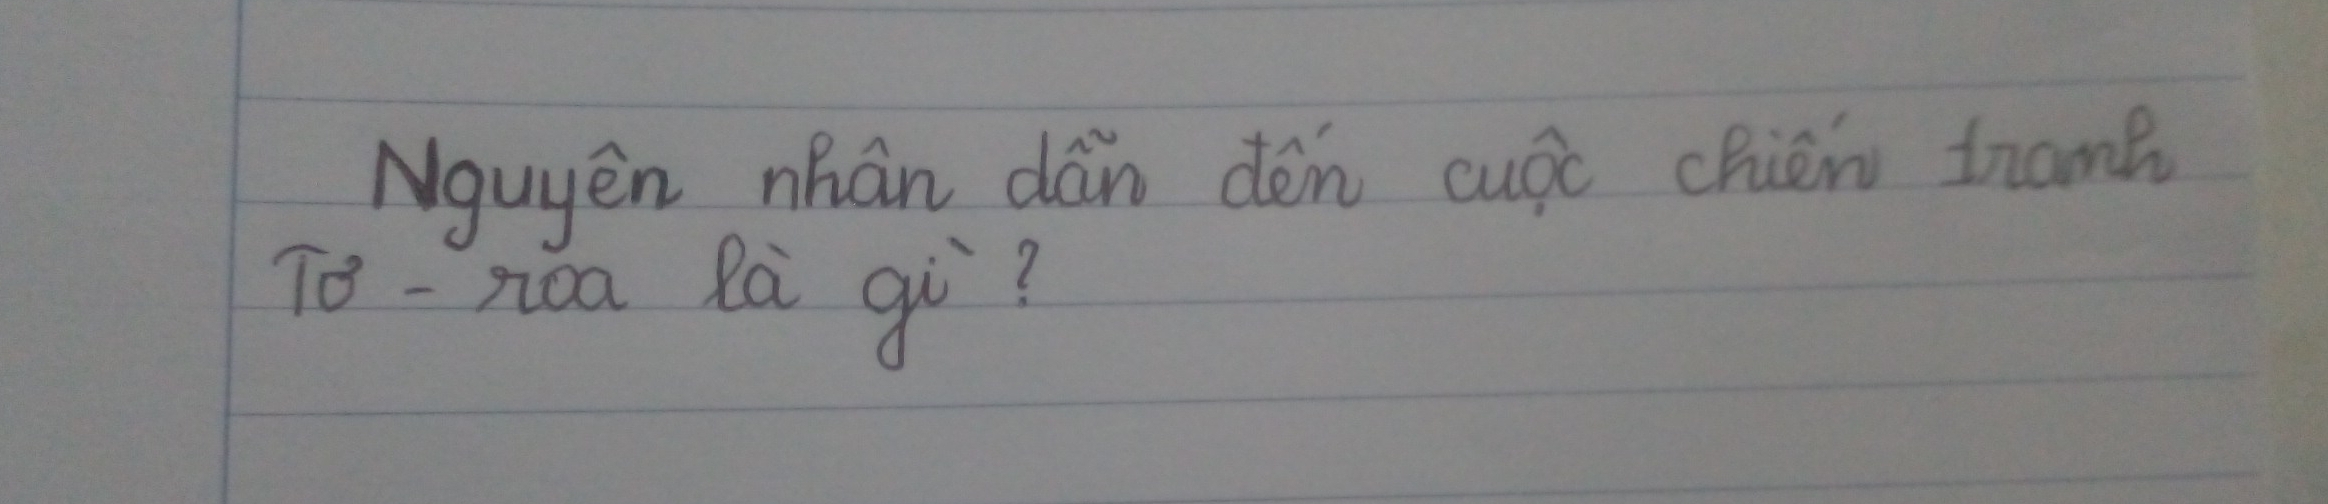 Nguyên nhân dẫn đến cuộc chiến tranh
Tơ - roa là gì ?